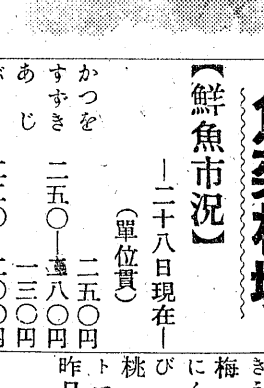 【鮮魚市況】
―二十八日現在―
(單位貫)
かつを 二五〇円
すずき 二五〇―八〇円
あじ 一三〇円
梅
に
び
桃
ト
昨